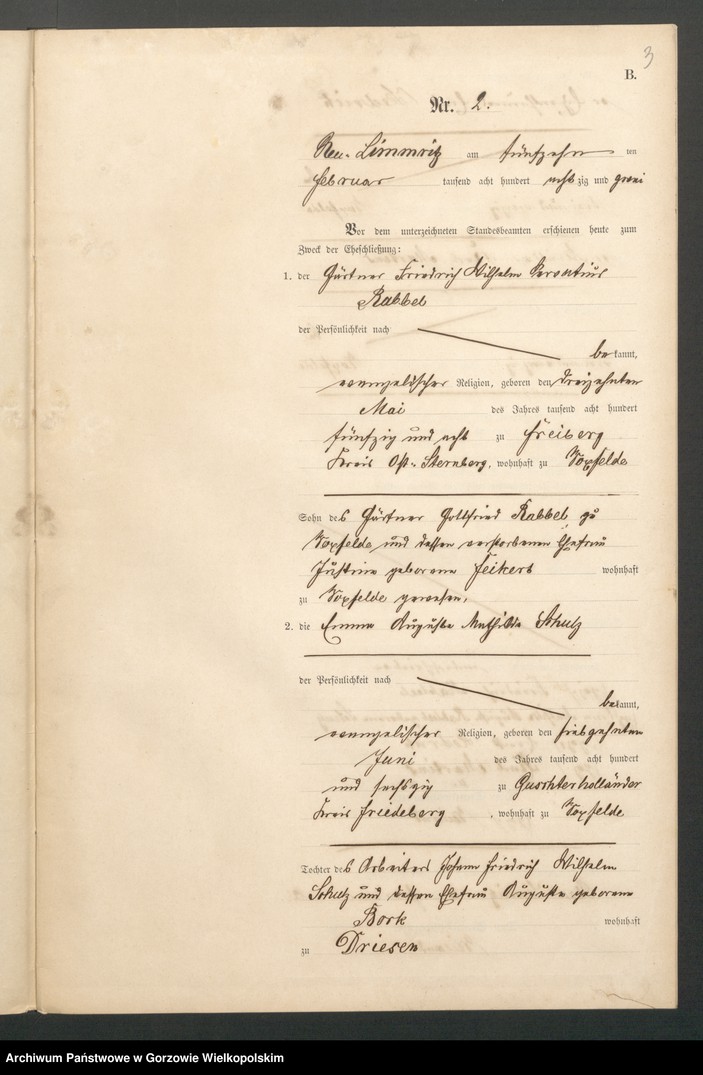 3
B.
Nr. 2.
Neu-Limmritz am fünfzehn ten
Februar tausend acht hundert achtzig und zwei
Vor dem unterzeichneten Standesbeamten erschienen heute zum
Zweck der Eheschließung:
1. der Gärtner Friedrich Wilhelm Servatius
Rabbel
der Persönlichkeit nach
bekannt,
evangelischer Religion, geboren den dreizehnten
Mai des Jahres tausend acht hundert
fünfzig und acht zu Freiberg
Kreis Ost-Sternberg, wohnhaft zu Voxfelde
Sohn des Gärtner Gottfried Rabbel, zu
Voxfelde und dessen verstorbenen Ehefrau
Justine geborene Feikert wohnhaft
zu Voxfelde gewesen,
2. die Emma Auguste Mathilde Schulz
der Persönlichkeit nach
bekannt,
evangelischer Religion, geboren den siebzehnten
Juni des Jahres tausend acht hundert
und sechszig zu Guschterholländer
Kreis Friedeberg, wohnhaft zu Voxfelde
Tochter des Arbeiters Johann Friedrich Wilhelm
Schulz und dessen Ehefrau Auguste geborene
Bork wohnhaft
zu Driesen
Archiwum Państwowe w Gorzowie Wielkopolskim